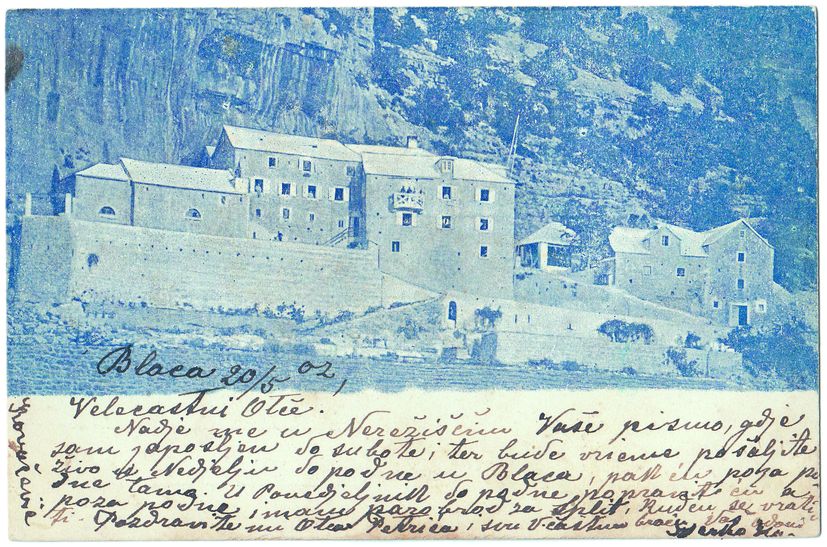 Blaca 20/5 02,
Velecastni Otče.
Nadje me u Nerežišćim Vaše pismo, gdje
sam zaposljen do subote, ter bude vrieme pošaljite
živo u Nedjelju do podne u Blaca, pak ću poza po
dne tamo. U Ponedjeljnik do podne popravit ću a
poza podne, imam parobrod za Split, kuden se vrati
ti. Pozdravite mi Otca Petrića, i svu Častnu braću